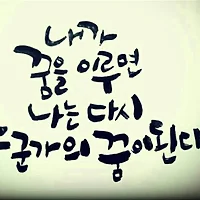 내가
꿈을 이루면
나는 다시
누군가의 꿈이된다